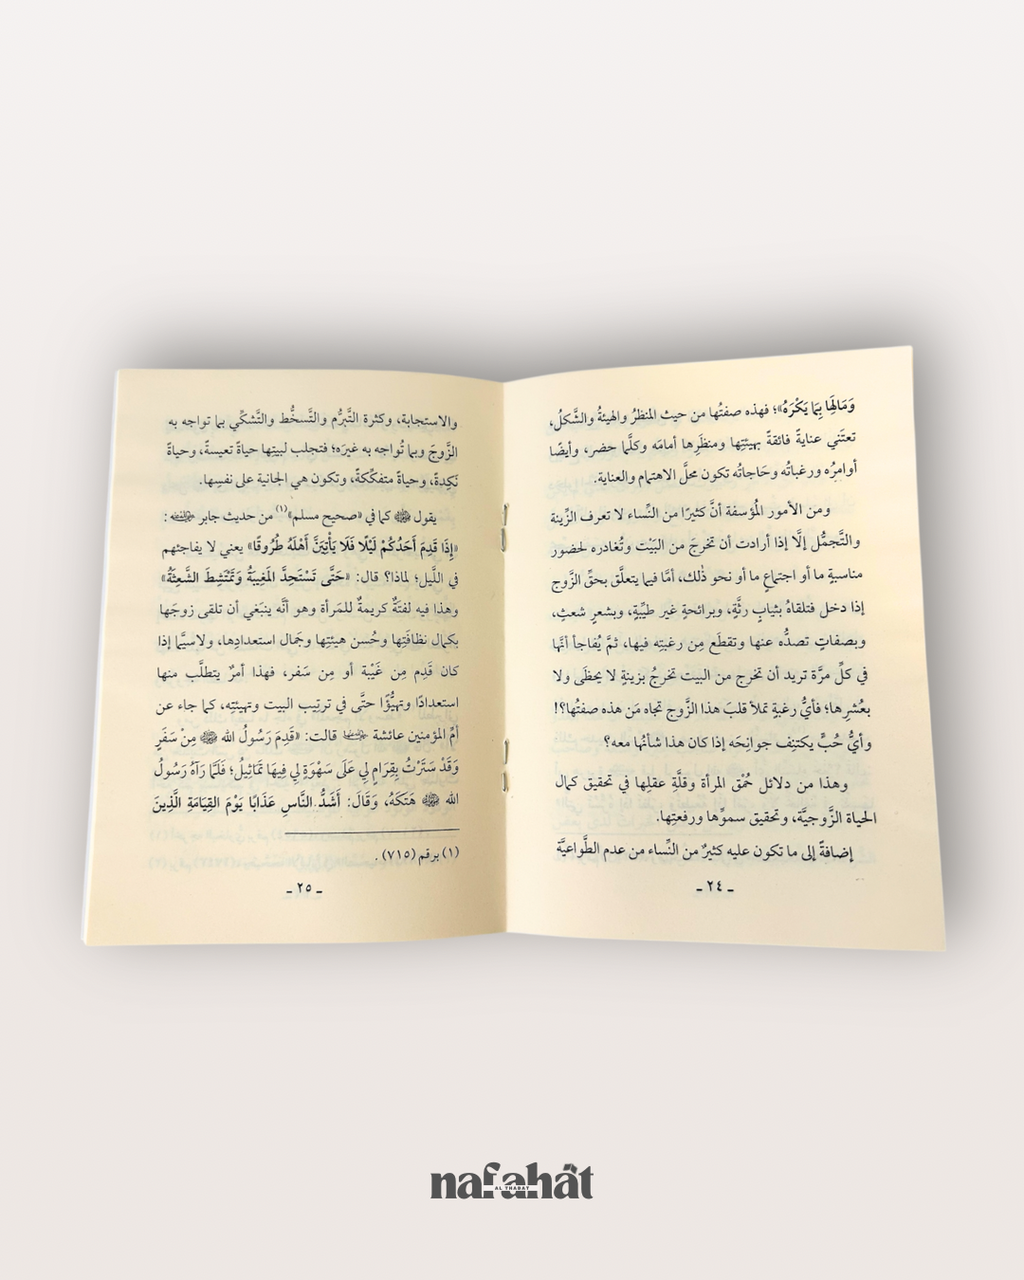 وَمَالِهَا بِمَا يَكْرَهُ»؛ فهذه صفتُها من حيث المنظرُ والهيئةُ والشَّكلُ،
تعتَني عنايةً فائقةً بهيئتِها ومنظَرِها أمامَه وكلَّما حضر، وأيضًا
أوامرُه ورغباتُه وحَاجاتُه تكون محلَّ الاهتمام والعناية.
ومن الأمور المُؤسفة أنَّ كثيرًا من النِّساء لا تعرف الزِّينة
والتَّجمُّل إلَّا إذا أرادت أن تخرجَ من البَيْت وتُغادره لحضور
مناسبةٍ ما أو اجتماعٍ ما أو نحو ذٰلك، أمَّا فيما يتعلَّق بحقِّ الزَّوج
إذا دخل فتلقاهُ بثيابٍ رثَّةٍ، وبرائحةٍ غير طيِّبةٍ، وبشعرٍ شعثٍ،
وبصفاتٍ تصدُّه عنها وتقطَع مِن رغبتِه فيها، ثمَّ يُفاجأ أنَّها
في كلِّ مرَّة تريد أن تخرج من البيت تخرجُ بزينةٍ لا يحظَى ولا
بعُشرِها؛ فأيُّ رغبةٍ تملأ قلبَ هذا الزَّوج تجاه مَن هذه صفتُها؟!
وأيُّ حُبٍّ يكتنِف جوانِحَه إذا كان هذا شأنُها معه؟
وهذا من دلائل حُمْق المرأة وقلَّةِ عقلِها في تحقيق كمال
الحياة الزَّوجيَّة، وتحقيق سموِّها ورفعتِها.
إضافةً إلى ما تكون عليه كثيرٌ من النِّساء من عدم الطَّواعيَّة
ـ ٢٤ ـ
والاستجابة، وكثرة التَّبرُّم والتَّسخُّط والتَّشكِّي بما تواجه به
الزَّوجَ وبما تُواجه به غيرَه؛ فتجلب لبيتها حياةً تعيسةً، وحياةً
نَكِدةً، وحياةً متفكِّكةً، وتكون هي الجانية على نفسِها.
يقول ﷺ كما في «صحيح مسلم»(١) من حديث جابر :
«إِذَا قَدِمَ أَحَدُكُمْ لَيْلًا فَلَا يَأْتِيَنَّ أَهْلَهُ طُرُوقًا» يعني لا يفاجئهم
في اللَّيل؛ لماذا؟ قال: «حَتَّى تَسْتَحِدَّ المَغِيبَةُ وَتَمْتَشِطَ الشَّعِثَةُ»
وهذا فيه لفتَةٌ كريمةٌ للمَرأة وهو أنَّه ينبَغي أن تلقى زوجَها
بكمال نظافَتِها وحُسن هيئتِها وجَمال استعدادِها، ولاسيَّما إذا
كان قَدِم مِن غَيْبة أو مِن سَفر، فهذا أمرٌ يتطلَّب منها
استعدادًا وتهيُّؤًا حتَّى في ترتِيب البيت وتهيئتِه، كما جاء عن
أمِّ المؤمنين عائشة قالت: «قَدِمَ رَسُولُ الله ﷺ مِنْ سَفَرٍ
وَقَدْ سَتَرْتُ بِقِرَامٍ لِي عَلَى سَهْوَةٍ لِي فِيهَا تَمَاثِيلُ؛ فَلَمَّا رَآهُ رَسُولُ
الله ﷺ هَتَكَهُ، وَقَالَ: أَشَدُّ النَّاسِ عَذَابًا يَوْمَ القِيَامَةِ الَّذِينَ
(١) برقم (٧١٥) .
ـ ٢٥ ـ
nafahat
AL THABAT